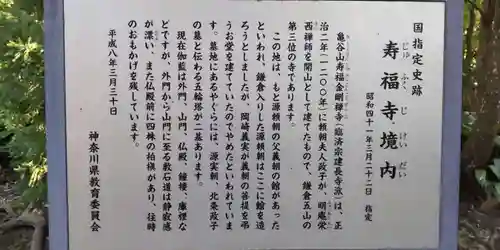 国指定史跡
寿福寺境内
じゅ ふく じ けい だい
昭和四十一年三月二十二日 指定
亀谷山寿福金剛禅寺(臨済宗建長寺派)は、正
治二年(一二〇〇年)に頼朝夫人政子が、明庵栄
西禅師を開山として建てたもので、鎌倉五山の
第三位の寺であります。
この地は、もと源頼朝の父義朝の館があった
といわれ、鎌倉入りした源頼朝はここに館を造
ろうとしましたが、岡崎義実が義朝の菩提を弔
うお堂を建てていたのでやめたといわれていま
す。墓地にあるやぐらには、源実朝、北条政子
の墓と伝わる五輪塔が二基あります。
現在伽藍は外門、山門、仏殿、鐘楼、庫裡な
どですが、外門から山門に至る敷石道は静寂感
が漂い、また仏殿前に四株の柏槇があり、往時
のおもかげを残しています。
平成八年三月三十日
神奈川県教育委員会